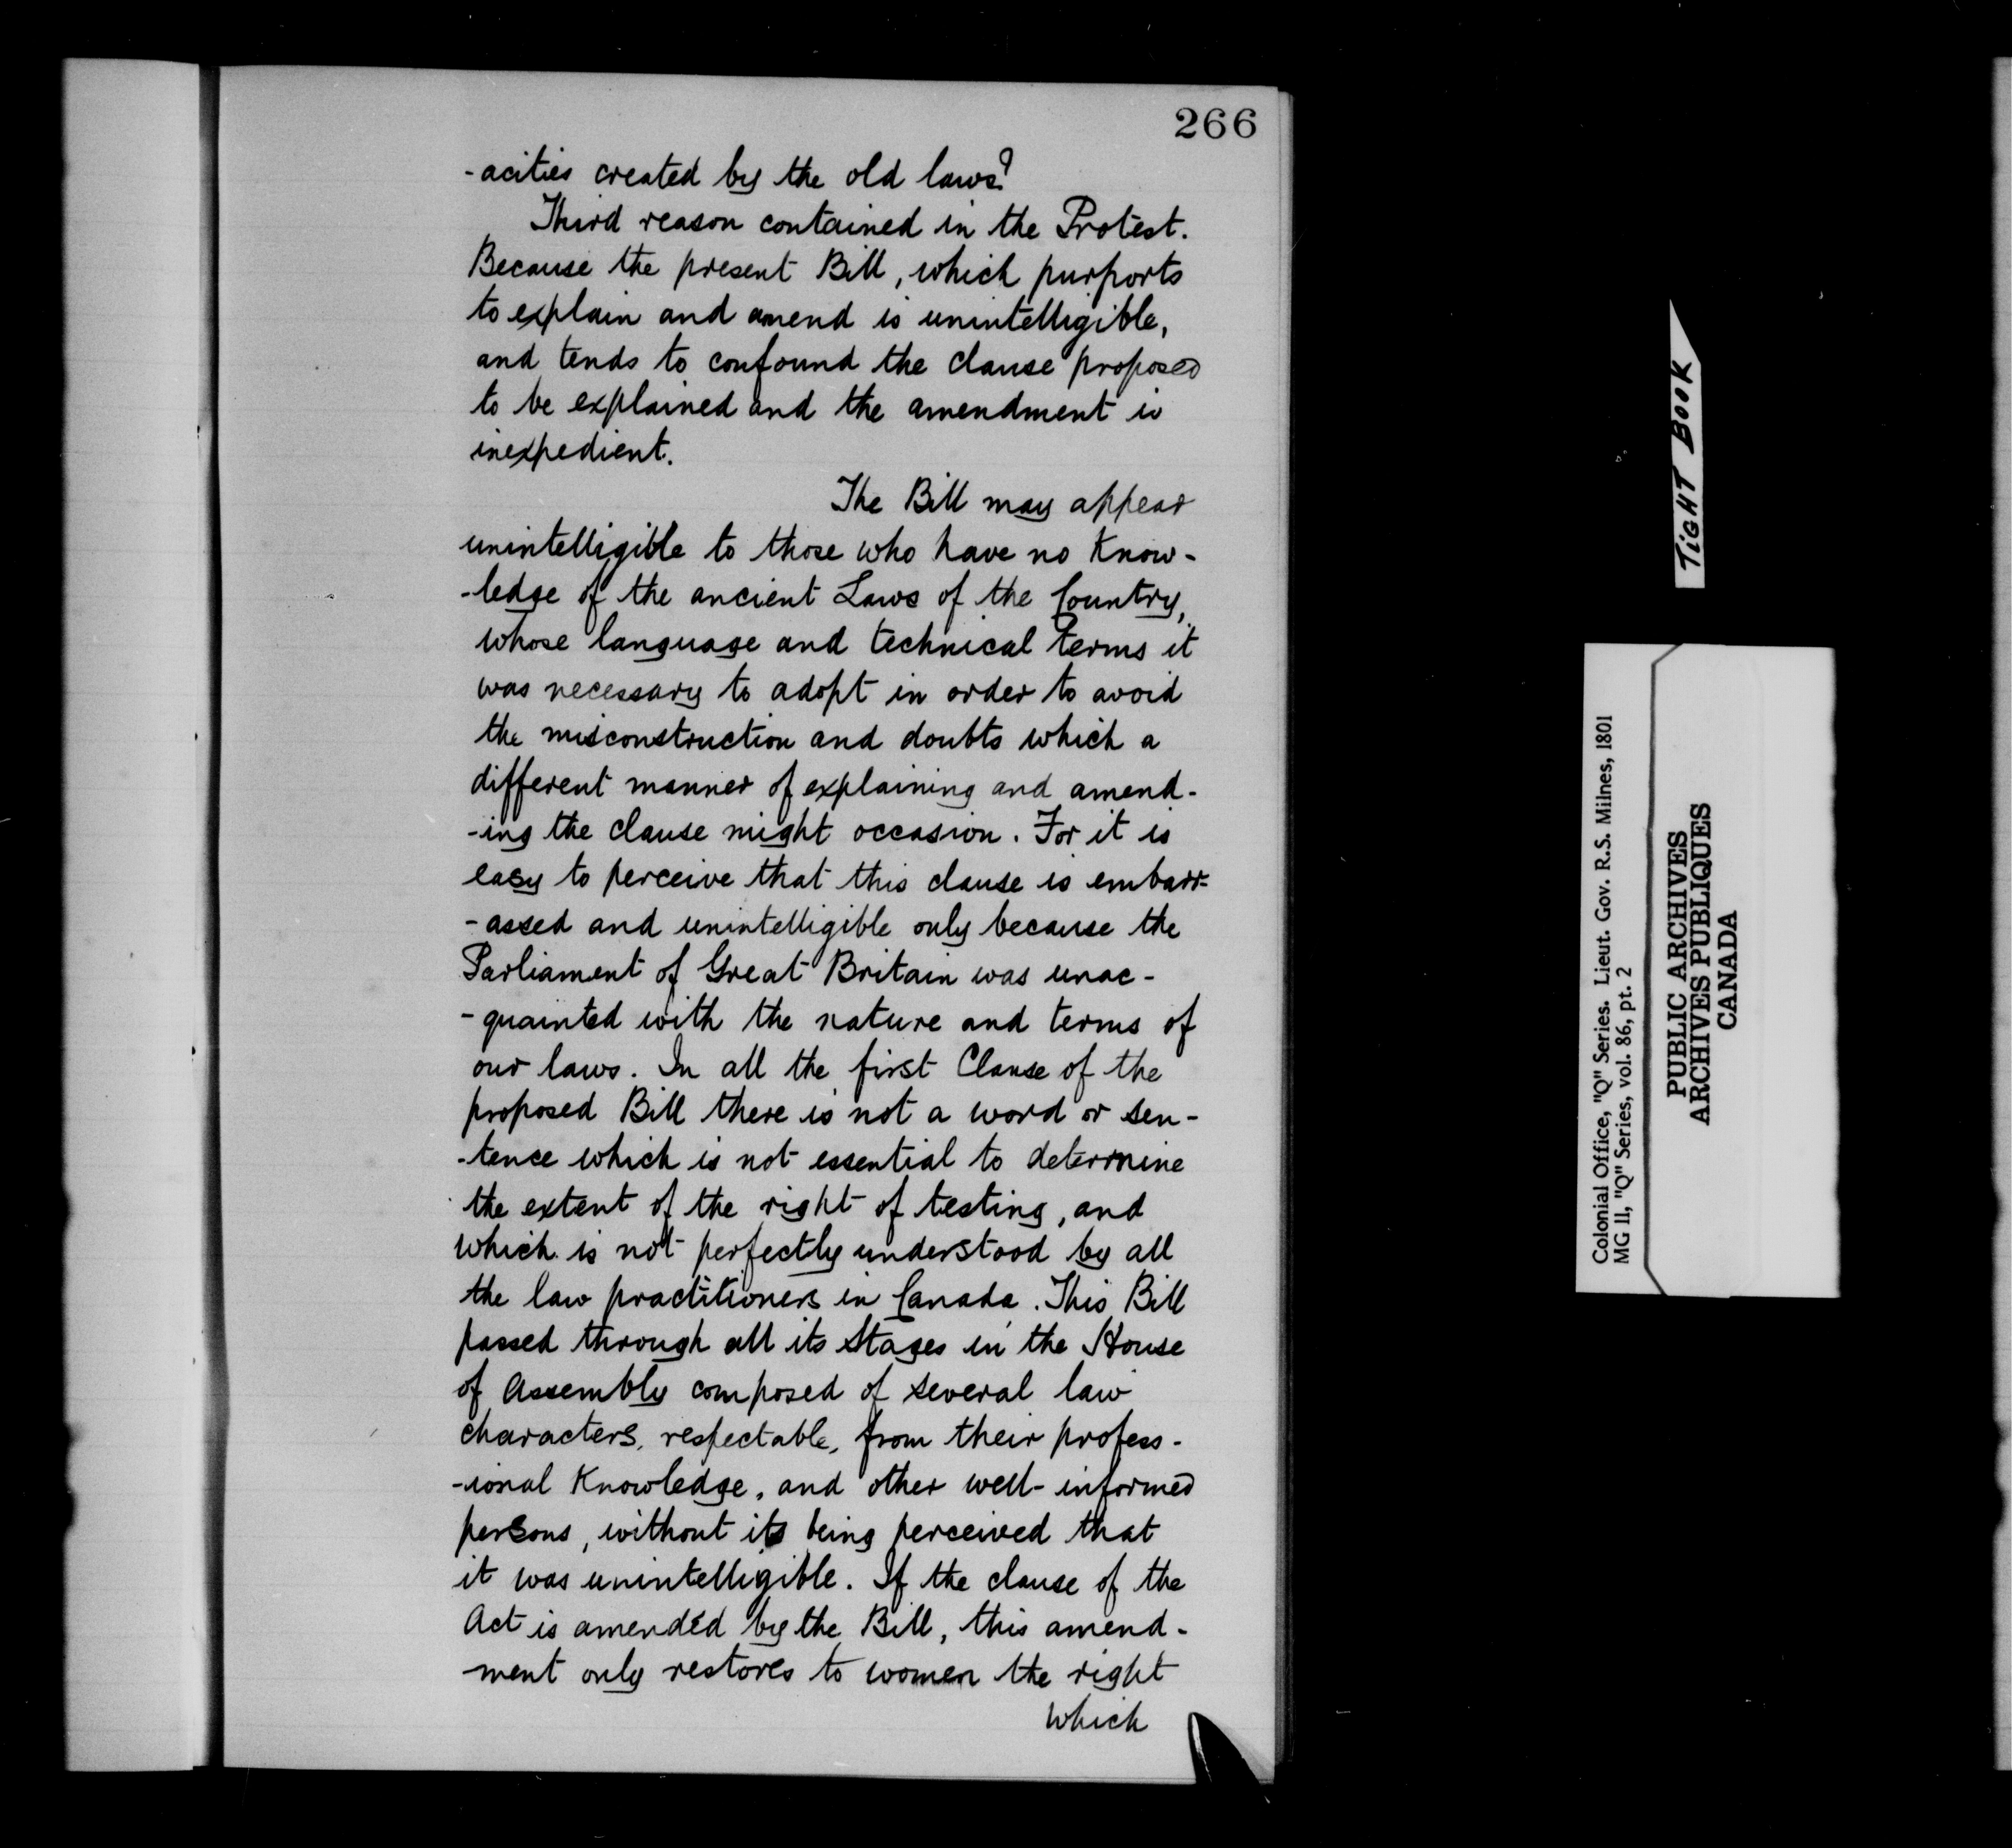 266
-acities created by the old laws?
Third reason contained in the Protest.
Because the present Bill, which purports
to explain and amend is unintelligible,
and tends to confound the clause proposed
to be explained and the amendment is
inexpedient.
The Bill may appear
unintelligible to those who have no Know-
-ledge of the ancient Laws of the Country,
whose language and technical terms it
was necessary to adopt in order to avoid
the misconstruction and doubts which a
different manner of explaining and amend-
-ing the clause might occasion. For it is
easy to perceive that this clause is embarr-
-assed and unintelligible only because the
Parliament of Great Britain was unac-
-quainted with the nature and terms of
our laws. In all the first Clause of the
proposed Bill there is not a word or sen-
-tence which is not essential to determine
the extent of the right of testing, and
which is not perfectly understood by all
the law practitioners in Canada. This Bill
passed through all its Stages in the House
of Assembly composed of several law
characters, respectable, from their profess-
-ional Knowledge, and other well-informed
persons, without its being perceived that
it was unintelligible. If the clause of the
Act is amended by the Bill, this amend-
-ment only restores to women the right
which
TIGHT BOOK
Colonial Office, "Q" Series. Lieut. Gov. R.S. Milnes, 1801
MG 11, "Q" Series, vol. 86, pt. 2
PUBLIC ARCHIVES
ARCHIVES PUBLIQUES
CANADA